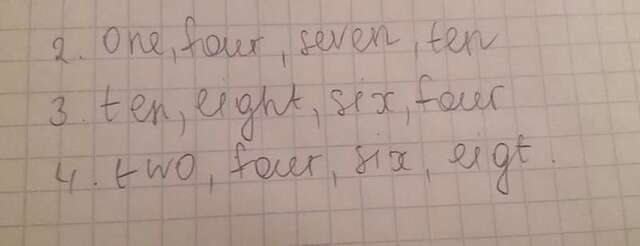 2. one, four, seven, ten
3. ten, eight, six, four
4. two, four, six, eigt.